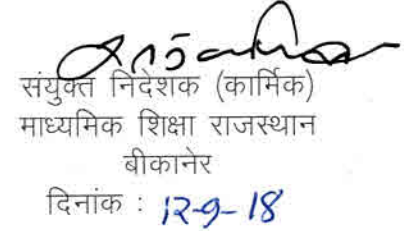 संयुक्त निदेशक (कार्मिक)
माध्यमिक शिक्षा राजस्थान
बीकानेर
दिनांक : 12-9-18